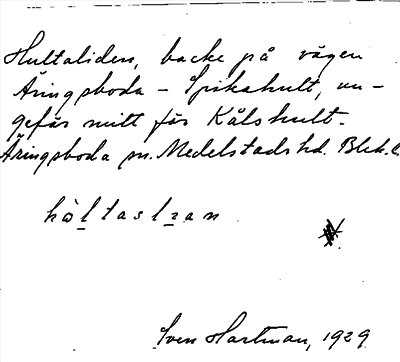 Hultaliden, backe på vägen
Äringsboda – Spikahult, un-
gefär mitt för Kålshult.
Äringsboda sn. Medelstads hd. Blek.l.
Sven Hartman, 1929